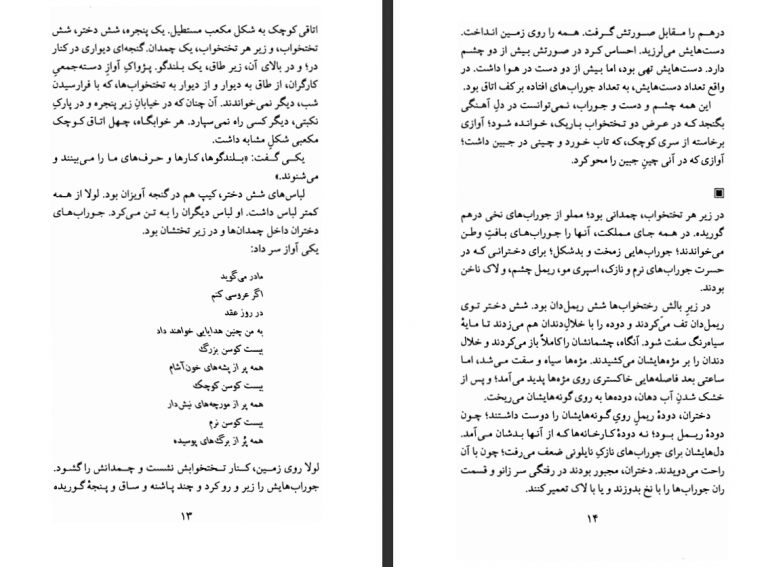 اتاقی کوچک به شکل مکعب مستطیل. یک پنجره، شش دختر، شش
تختخواب، و زیر هر تختخواب، یک چمدان. گنجه‌ای دیواری در کنار
در؛ و در بالای آن، زیر طاق، یک بلندگو. پژواکِ آوازِ دسته‌جمعیِ
کارگران، از طاق به دیوار و از دیوار به تختخواب‌ها، که با فرارسیدن
شب، دیگر نمی‌خواندند. آن چنان که در خیابانِ زیر پنجره و در پارکِ
نکبتی، دیگر کسی راه نمی‌سپارد. هر خوابگاه، چهل اتاق کوچک
مکعبی شکلِ مشابه داشت.
یکی گفت: «بلندگوها، کارها و حرف‌های ما را می‌بینند و
می‌شنوند.»
لباس‌های شش دختر، کیپ هم در گنجه آویزان بود. لولا از همه
کمتر لباس داشت. او لباس دیگران را به تن می‌کرد. جوراب‌های
دختران داخل چمدان‌ها و در زیر تختشان بود.
یکی آواز سر داد:
مادر می‌گوید
اگر عروسی کنم
در روز عقد
به من چنین هدایایی خواهند داد
بیست کوسن بزرگ
همه پر از پشه‌های خون‌آشام
بیست کوسن کوچک
همه پر از مورچه‌های نیش‌دار
بیست کوسن نرم
همه پُر از برگ‌های پوسیده
لولا روی زمین، کنار تختخوابش نشست و چمدانش را گشود.
جوراب‌هایش را زیر و رو کرد و چند پاشنه و ساق و پنجهٔ گوریده
۱۳
درهم را مقابل صورتش گرفت. همه را روی زمین انداخت.
دست‌هایش می‌لرزید. احساس کرد در صورتش بیش از دو چشم
دارد. دست‌هایش تهی بود، اما بیش از دو دست در هوا داشت. در
واقع تعداد دست‌هایش، به تعداد جوراب‌های افتاده بر کف اتاق بود.
این همه چشم و دست و جوراب، نمی‌توانست در دلِ آهنگی
بگنجد که در عرض دو تختخواب باریک، خوانده شود؛ آوازی
برخاسته از سری کوچک، که تاب خورد و چینی در جبین داشت؛
آوازی که در آنی چینِ جبین را محو کرد.
در زیر هر تختخواب، چمدانی بود؛ مملو از جوراب‌های نخی درهم
گوریده. در همه جای مملکت، آنها را جوراب‌های بافتِ وطن
می‌خواندند؛ جوراب‌هایی زمخت و بدشکل؛ برای دخترانی که در
حسرت جوراب‌های نرم و نازک، اسپری مو، ریمل چشم، و لاک ناخن
بودند.
در زیر بالش رختخواب‌ها شش ریمل‌دان بود. شش دختر توی
ریمل‌دان تف می‌کردند و دوده را با خلال‌دندان هم می‌زدند تا مایهٔ
سیاه‌رنگ سفت شود. آنگاه، چشمانشان را کاملاً باز می‌کردند و خلال
دندان را بر مژه‌هایشان می‌کشیدند. مژه‌ها سیاه و سفت می‌شد، اما
ساعتی بعد فاصله‌هایی خاکستری روی مژه‌ها پدید می‌آمد؛ و پس از
خشک شدنِ آب دهان، دوده‌ها به روی گونه‌هایشان می‌ریخت.
دختران، دودهٔ ریملِ رویِ گونه‌هایشان را دوست داشتند؛ چون
دودهٔ ریمل بود؛ نه دودهٔ کارخانه‌ها که از آنها بدشان می‌آمد.
دل‌هایشان برای جوراب‌های نازکِ نایلونی ضعف می‌رفت؛ چون با آن
راحت می‌دویدند. دختران، مجبور بودند در رفتگی سر زانو و قسمت
ران جوراب‌ها را با نخ بدوزند و یا با لاک تعمیر کنند.
۱۴